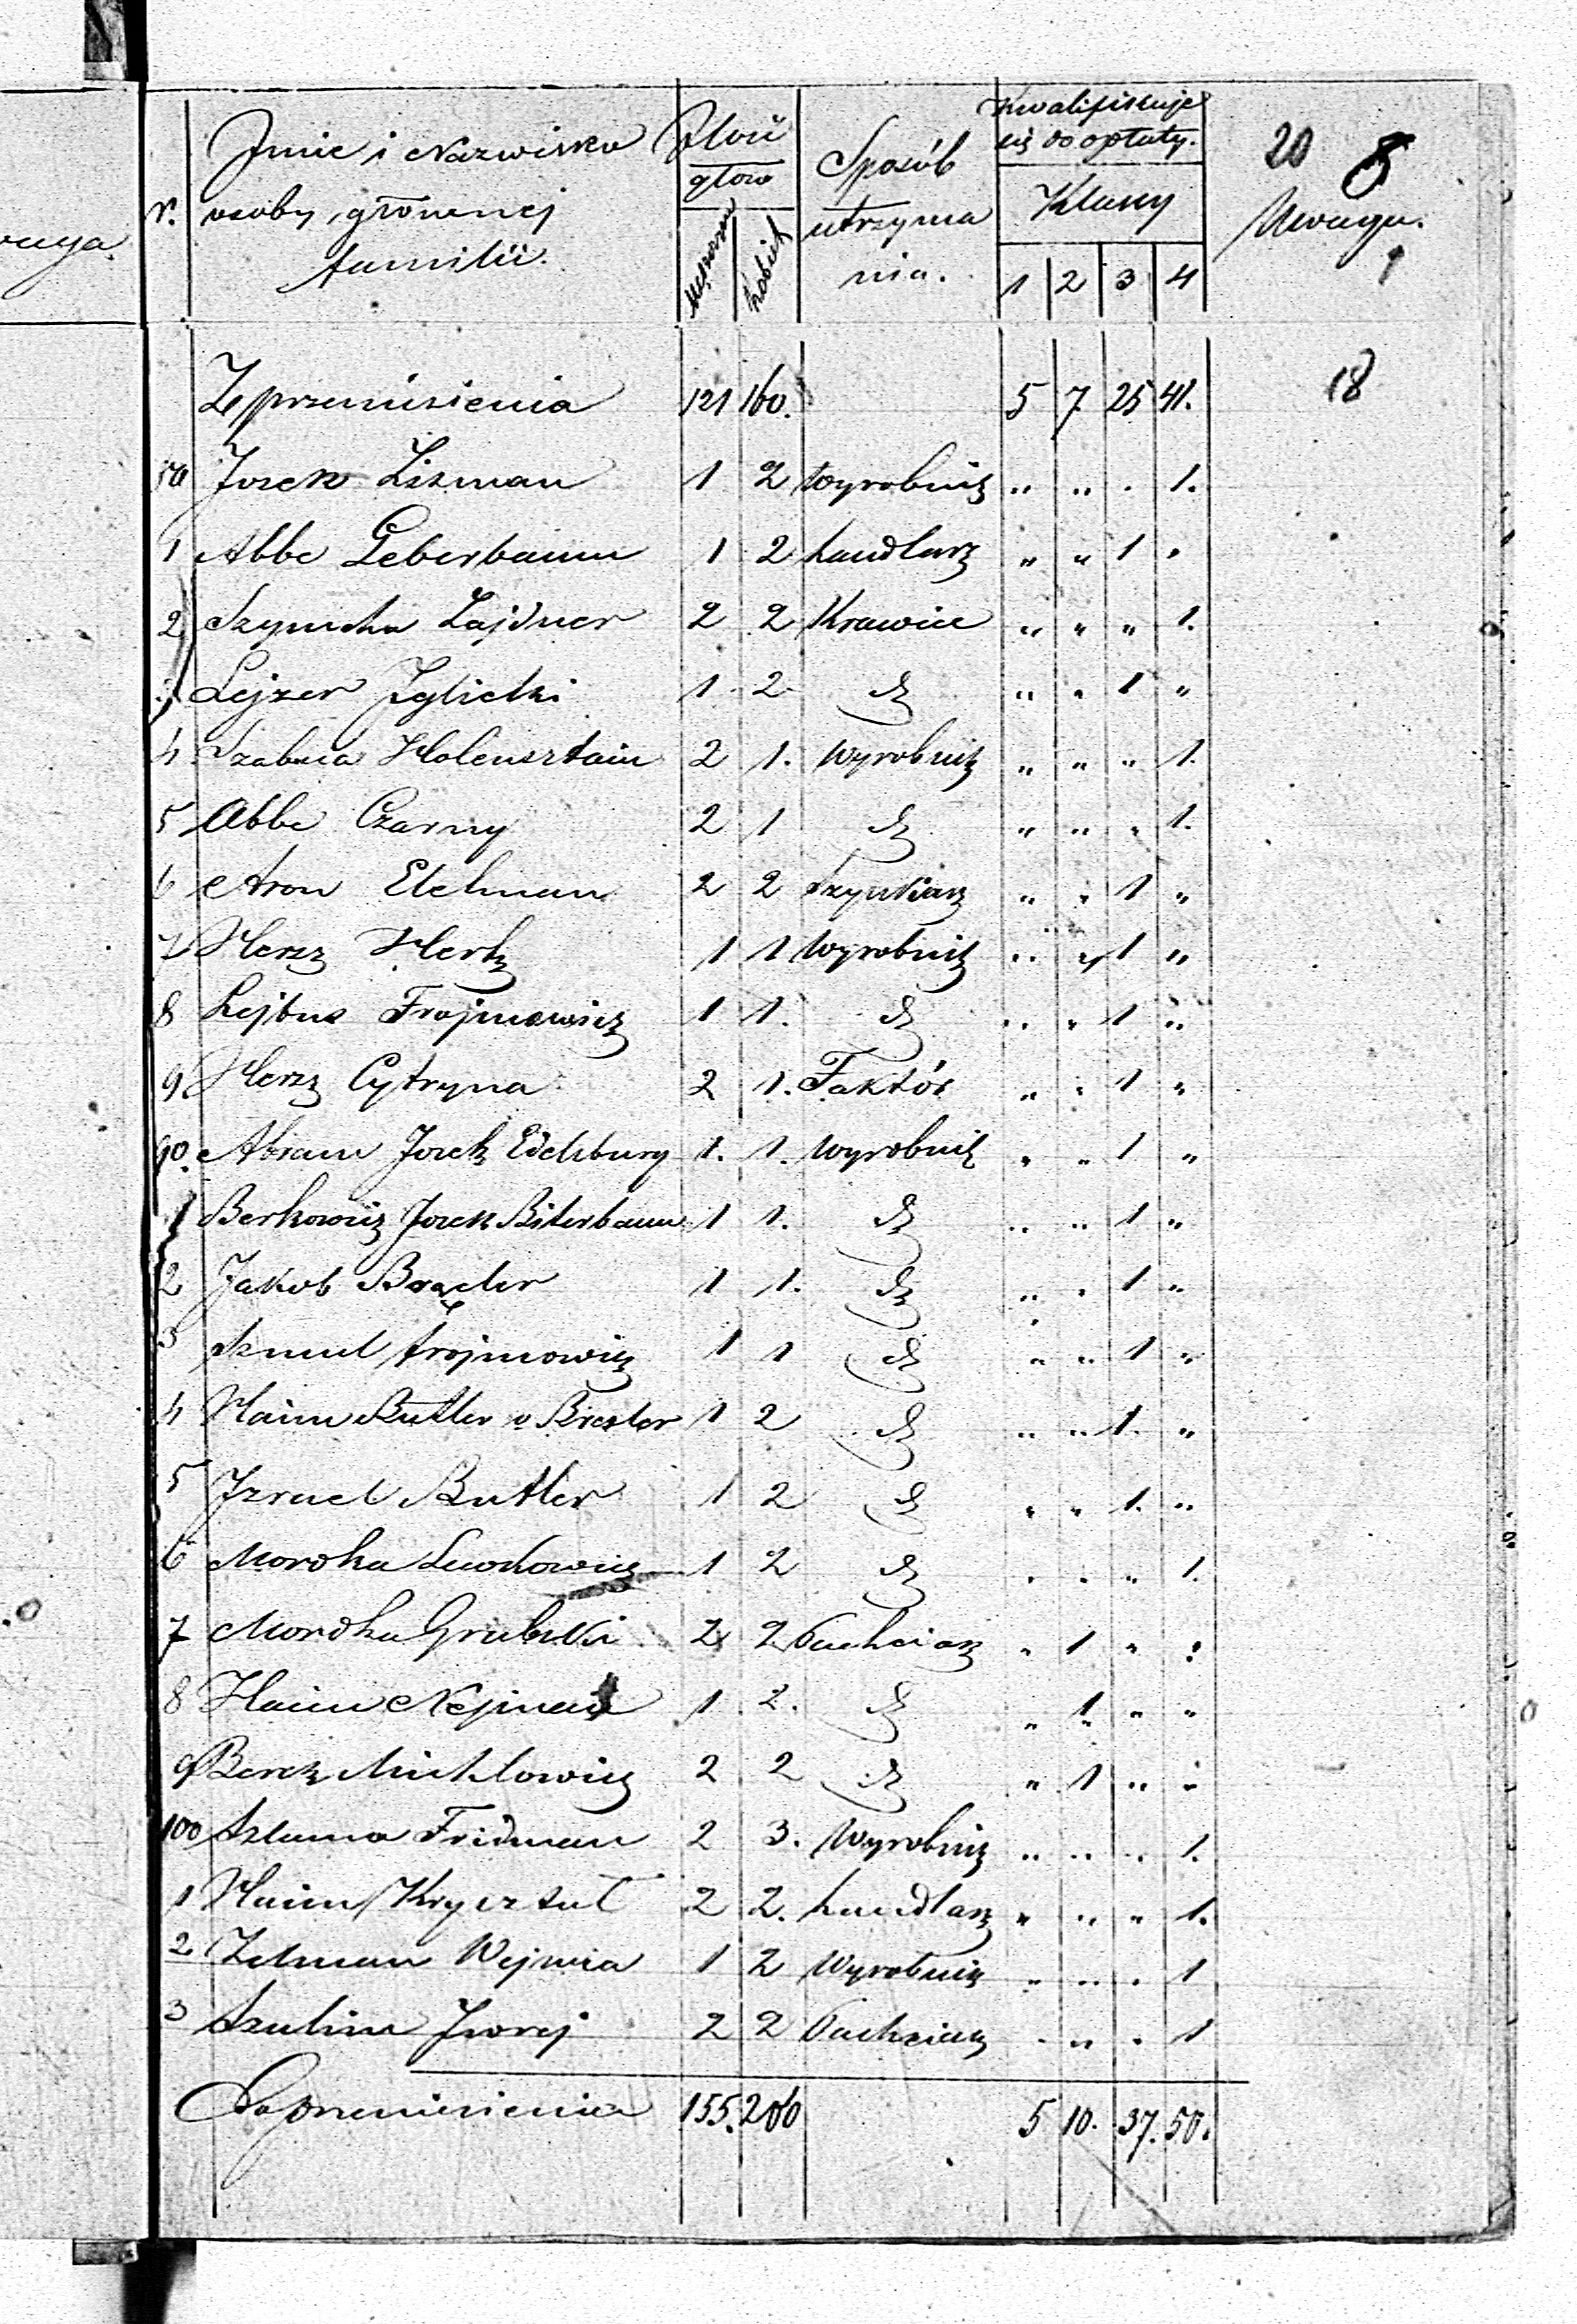 waga.
N. Imie i Nazwisko osoby głównej familii. Ilość głów Mężczyzn Kobiet Sposób utrzymania. Kwalifikuje się do opłaty. Klassy 1 2 3 4 Uwaga.
20 8
9
Z przeniesienia 121 160. 5 7 25 41. 18
Josek Lisman 1 2 wyrobnik " " " 1.
1 Abbe Leberbaum 1 2 handlarz " " 1 "
2 Szymcha Zajdner 2 2 Krawiec " " " 1.
3 Lejzer Iglicki 1 2 dt " " 1 "
4 Holensztain 2 1. wyrobnik " " " 1.
5 Abbe Czarny 2 1 dt " " " 1.
6 Aron Etelman 2 2 Szynkarz " " 1 "
7 Hersz Hertz 1 1 Wyrobnik " " 1 "
8 Lejbus Frojmowicz 1 1. dt " " 1 "
9 Hersz Cytryna 2 1. Faktór " " 1 "
90. Abram Josek Edelsburg 1. 1. wyrobnik " " 1 "
1 Berkowicz Josek Biterbaum 1 1. dt " " 1 "
2 Jakob 1 1. dt " " 1 "
3 Szmul Frojmowicz 1 1 dt " " 1 "
4 Haim Butler v Brester 1 2 dt " " 1. "
5 Izrael Butler 1 2 dt " " 1. "
6 Mordka 1 2 dt " " " 1.
7 Mordka Grubski 2 2 Pachciarz " 1 " "
8 Haim Nejman 1 2. dt " 1 " "
9 Berek Michlowicz 2 2 dt " 1 " "
100 Szlama Fridman 2 3. Wyrobnik " " " 1.
1 Haim Kryształ 2 2. handlarz " " " 1.
2 Zelman Wejnia 1 2 Wyrobnik " " " 1
3 Szulim 2 2 Pachciarz " " " 1
Do przeniesienia 155. 200 5 10. 37. 50.